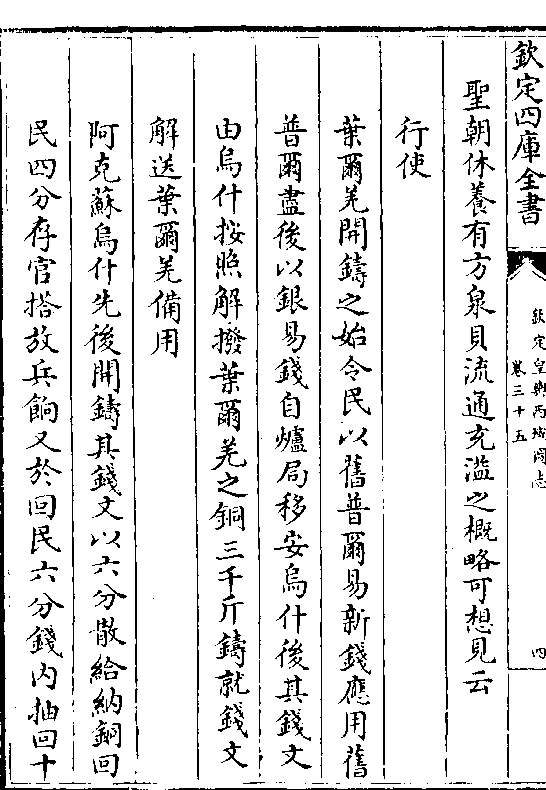 欽定四庫全書
欽定皇輿西域圖志
卷三十五
四
聖朝休養有方泉貝流通充溢之概略可想見云
行使
葉爾羌開鑄之始令民以舊普爾易新錢應用舊
普爾盡後以銀易錢自爐局移安烏什後其錢文
由烏什按照解撥葉爾羌之銅三千斤鑄就錢文
解送葉爾羌備用
阿克蘇烏什先後開鑄其錢文以六分散給納銅回
民四分存官搭放兵餉又於回民六分錢内抽回十